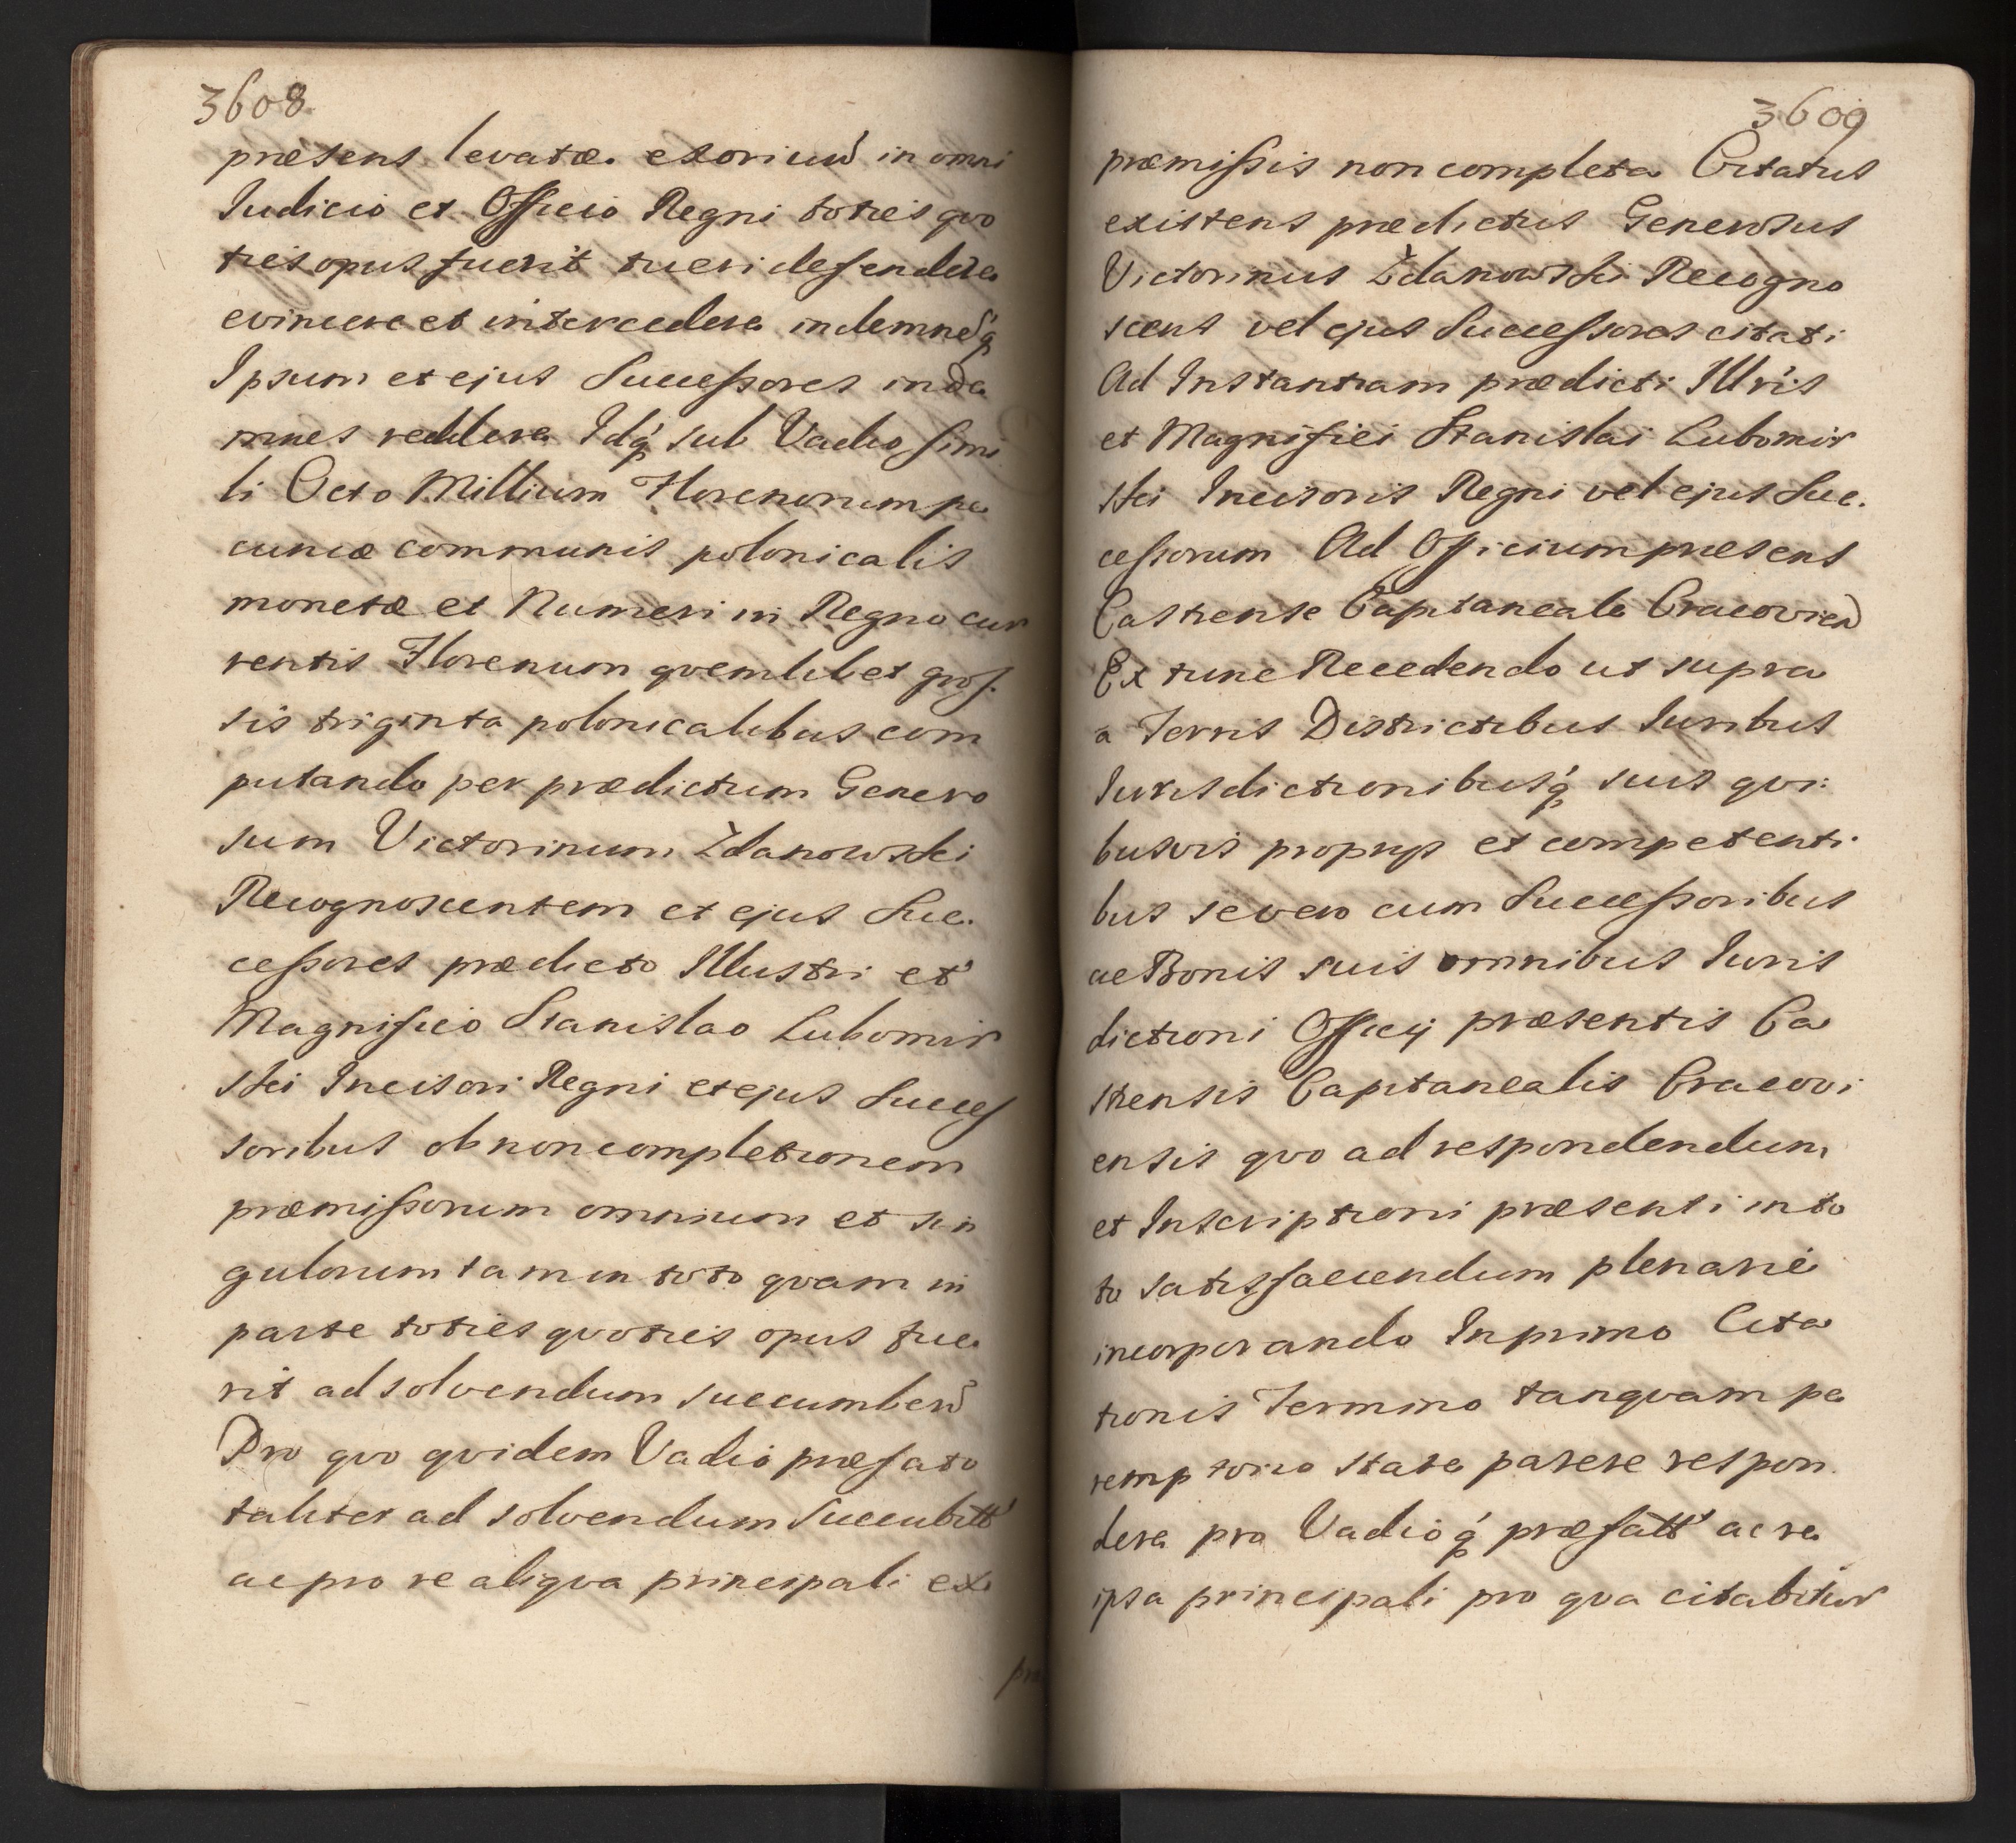 3608
præsens levatæ exoriund in omni
Iudicio et Officio Regni toties quo
ties opus fuerit tueri defendere
evincere et intercedere indemnesq́
Ipsum et ejus Successores inda
mnes reddere Idq́ sub Vadio simi
li Octo Millium Florenorum pe
cuniæ communis polonicalis
monetæ et Numeri in Regno cur
rentis Florenum quemlibet gros
sis triginta polonicalibus com
putando per prædictum Genero
sum Victorinum Żdanowski
Recognoscentem et ejus Suc
cessores prædicto Illustri et
Magnifico Stanislao Lubomir
ski Incisori Regni et ejus Succes
soribus ob non completionem
præmissorum omnium et sin
gulorum tam in toto quam in
parte toties quoties opus fue
rit ad solvendum succumben
Pro quo quidem Vadio præfato
taliter ad solvendum Succubitt
ac pro re aliqua principali ex
præ
3609
præmissis non completa Citatus
existens prædictus Generosus
Victorinus Żdanowski Recogno
scens vel ejus Successores citati
Ad Instantiam prædicti Illris
et Magnifici Stanislai Lubomir
ski Incisoris Regni vel ejus Suc.
cessorum Ad Officium præsens
Castrense Capitaneale Cracovien
Ex tunc Recedendo ut supra
a Terris Districtibus Iuribus
Iurisdictionibusq́ suis qui
busvis proprys et competenti
bus se vero cum Successoribus
ac Bonis suis omnibus Iuris
dictioni Officij præsentis Ca
strensis Capitanealis Cracovi
ensis quo ad respondendum
et Inscriptioni præsenti in to
to satisfaciendum plenarie
incorporando In primo Cita
tionis Termino tanquam pe
remptorio stare parere respon
dere pro Vadioq́ præfatt ac re
ipsa principali pro qua citabitur